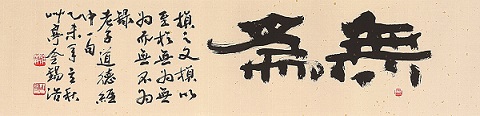 無為
損之又損以
至於無為無
為而無不為
錄
老子道德經
中一句
乙未年秋
金錫浩